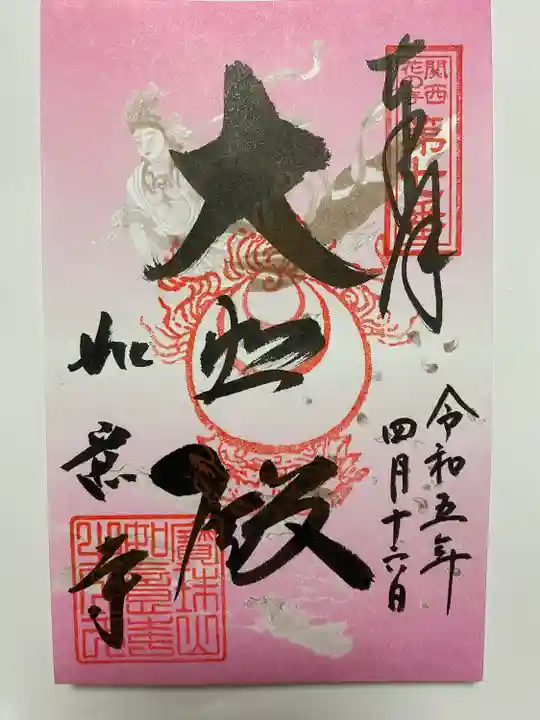 奉拝
関西
花の寺
第七番
令和五年
四月十六日
大悲殿
如意寺
寶珠山
如意寺